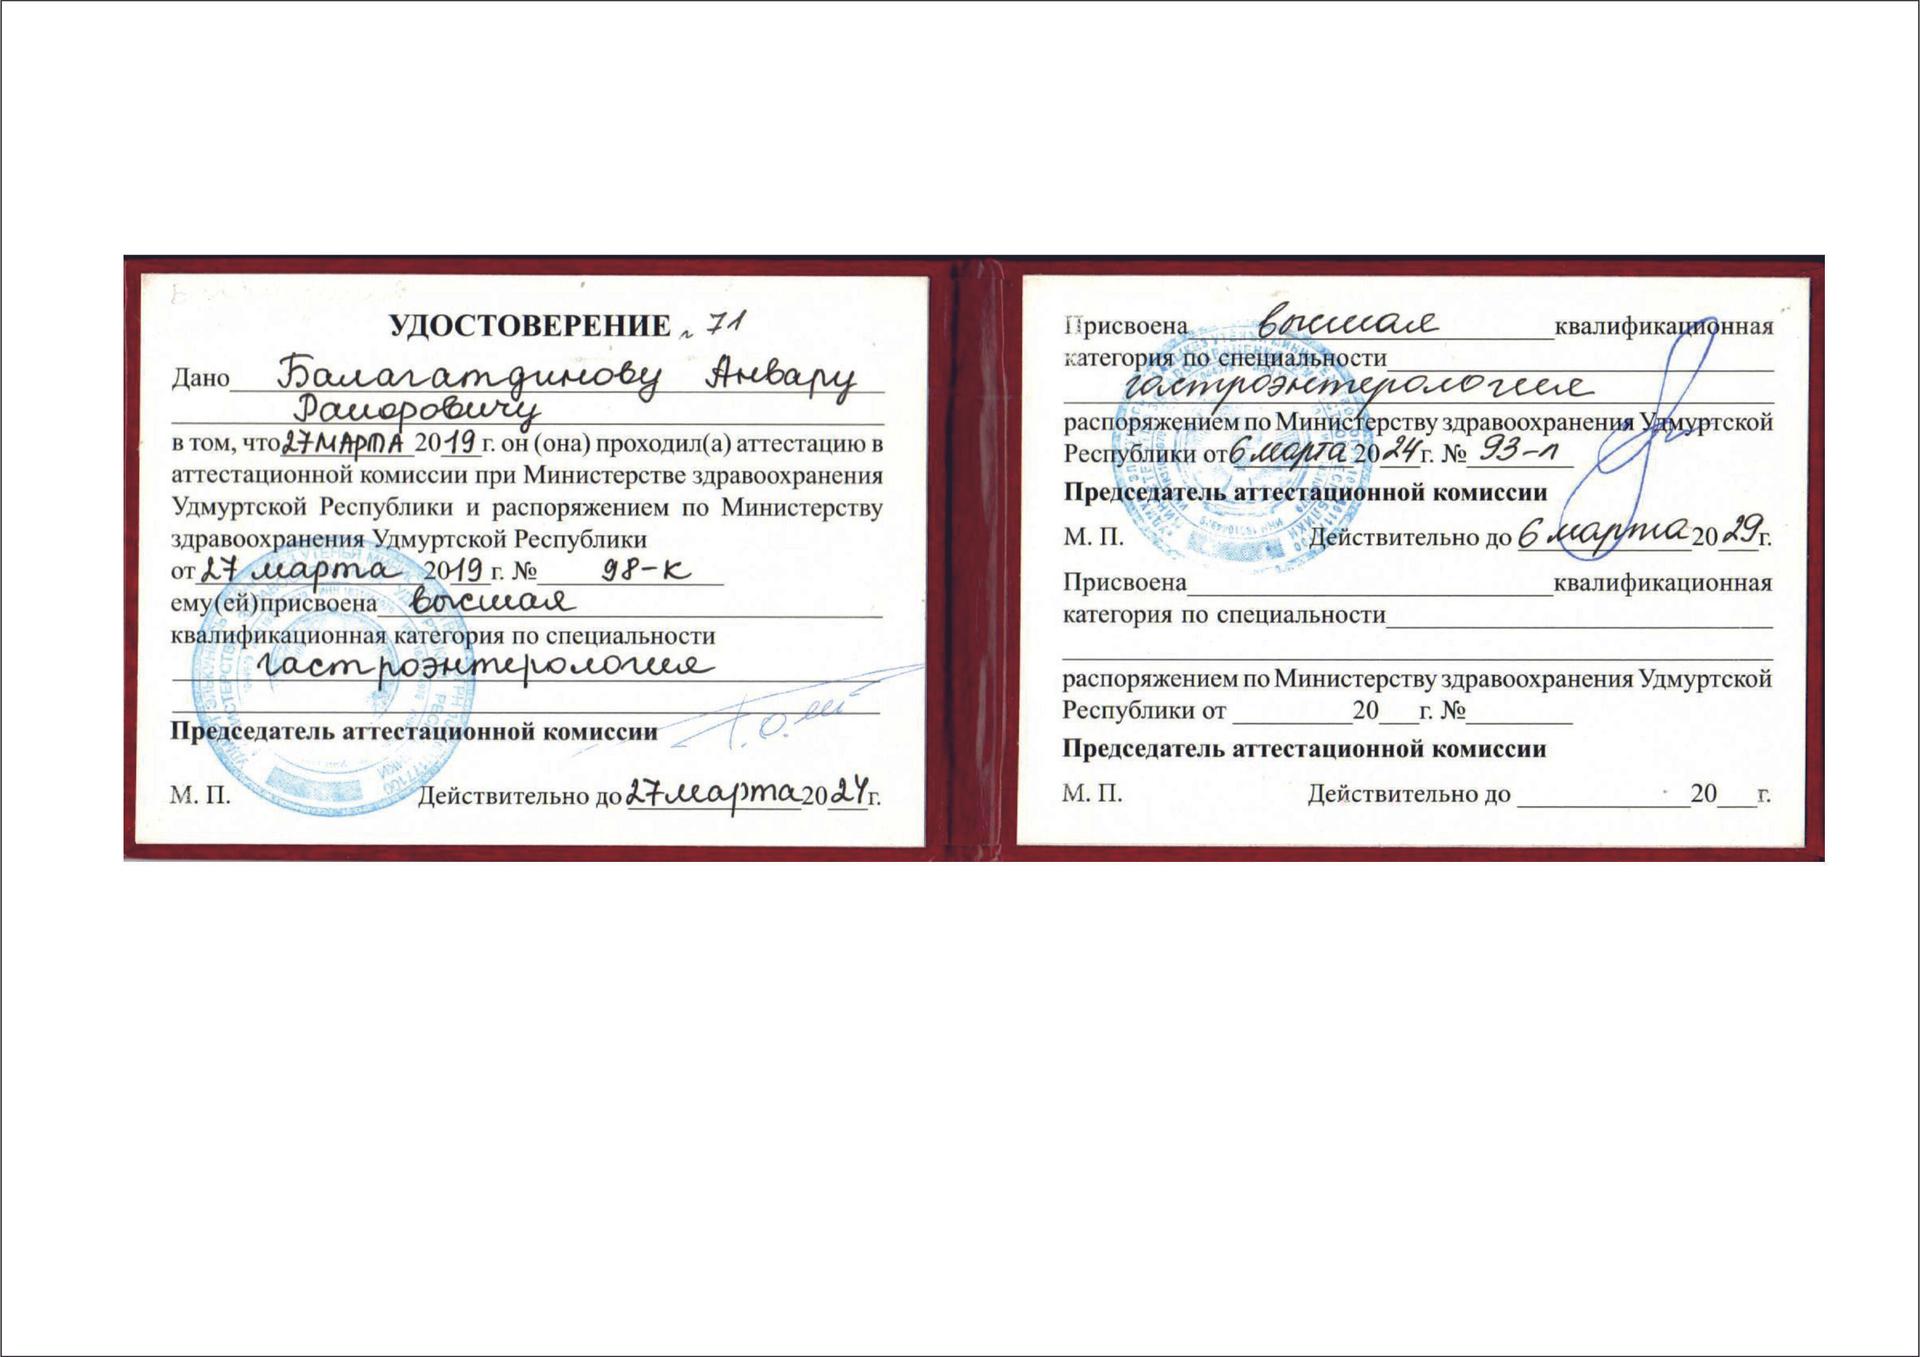 УДОСТОВЕРЕНИЕ № 71
Дано Балагатдинову Анвару
Раисовичу
в том, что 27 МАРТА 2019 г. он (она) проходил(а) аттестацию в
аттестационной комиссии при Министерстве здравоохранения
Удмуртской Республики и распоряжением по Министерству
здравоохранения Удмуртской Республики
от 27 марта 2019 г. № 98-к
ему(ей)присвоена высшая
квалификационная категория по специальности
гастроэнтерология
Председатель аттестационной комиссии
М. П. Действительно до 27 марта 2024 г.
Присвоена высшая квалификационная
категория по специальности
гастроэнтерология
распоряжением по Министерству здравоохранения Удмуртской
Республики от 6 марта 2024 г. № 93-л
Председатель аттестационной комиссии
М. П. Действительно до 6 марта 2029г.
Присвоена квалификационная
категория по специальности
распоряжением по Министерству здравоохранения Удмуртской
Республики от 20 г. №
Председатель аттестационной комиссии
М. П. Действительно до 20 г.